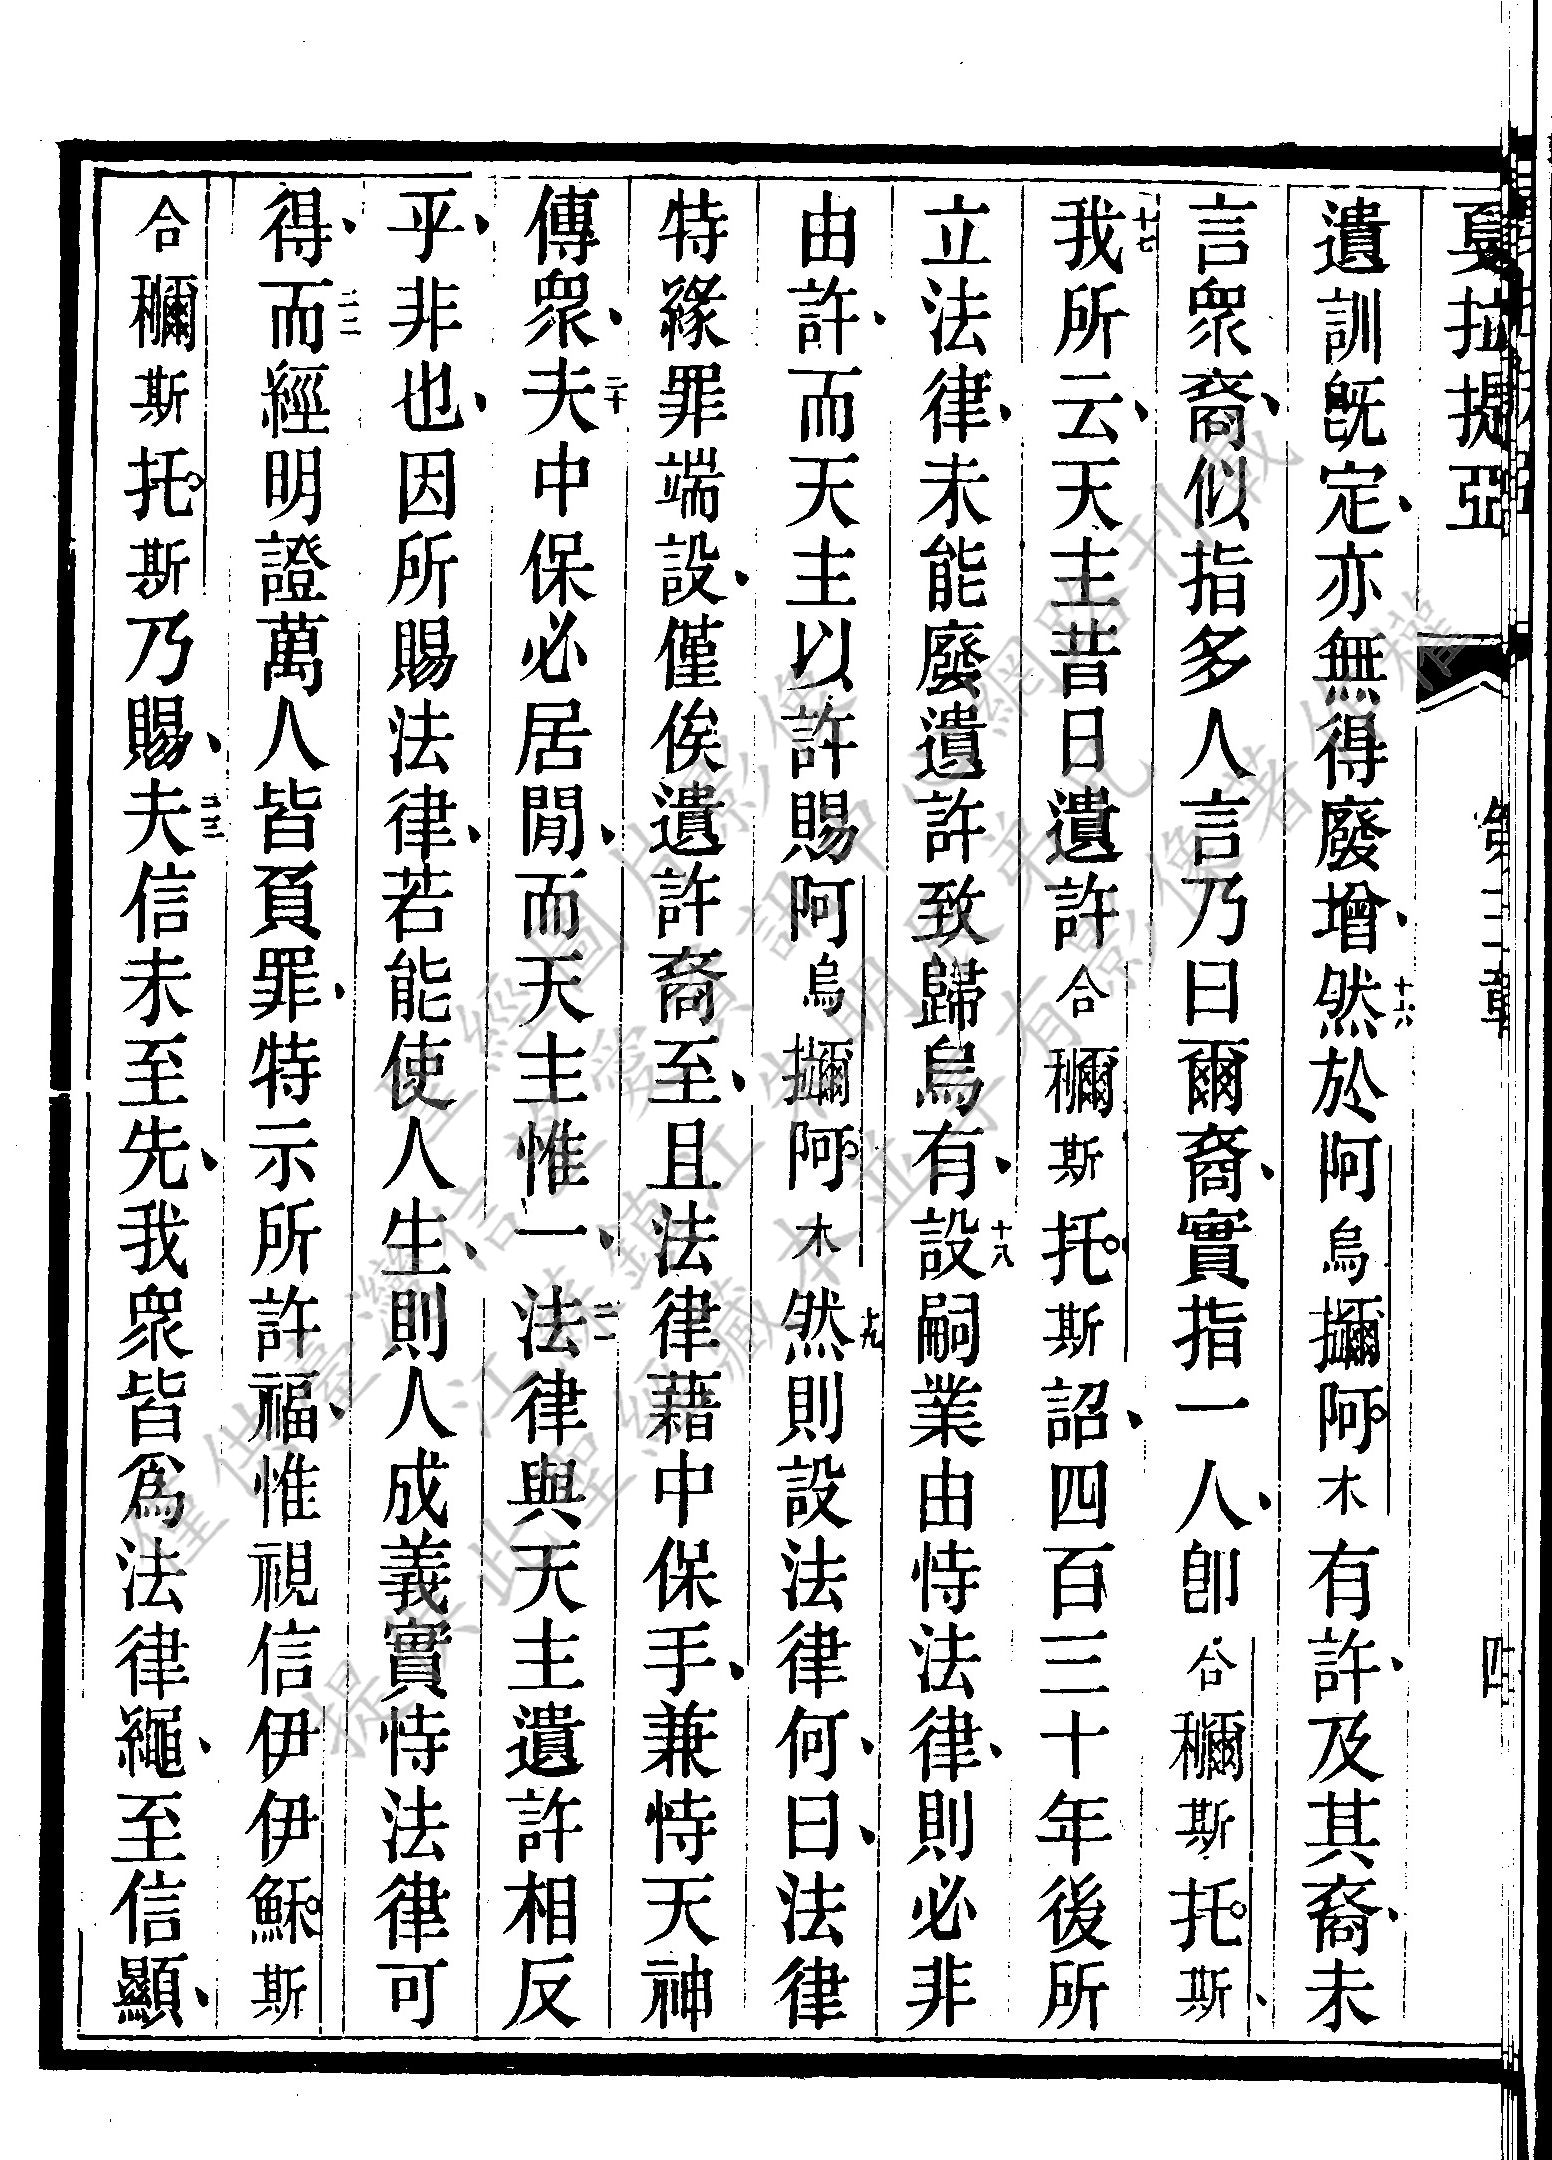 戛拉提亞 第三章 四
遺訓旣定、亦無得廢增、十六然於阿烏㩆阿木有許、及其裔、未
言衆裔、似指多人言、乃曰爾裔、實指一人、卽合穪斯托斯、
十七我所云、天主昔日遺許合穪斯托斯詔、四百三十年後所
立法律、未能廢遺許致歸烏有、十八設嗣業由恃法律、則必非
由許、而天主以許賜阿烏㩆阿木、十九然則設法律何、曰、法律
特緣罪端設、僅俟遺許裔至、且法律藉中保手、兼恃天神
傳衆、二十夫中保必居閒、而天主惟一、二一法律與天主遺許相反
乎、非也、因所賜法律、若能使人生、則人成義實恃法律可
得、二二而經明證萬人皆負罪、特示所許福、惟視信伊伊穌斯
合穪斯托斯乃賜、二三夫信未至先、我衆皆爲法律繩、至信顯、